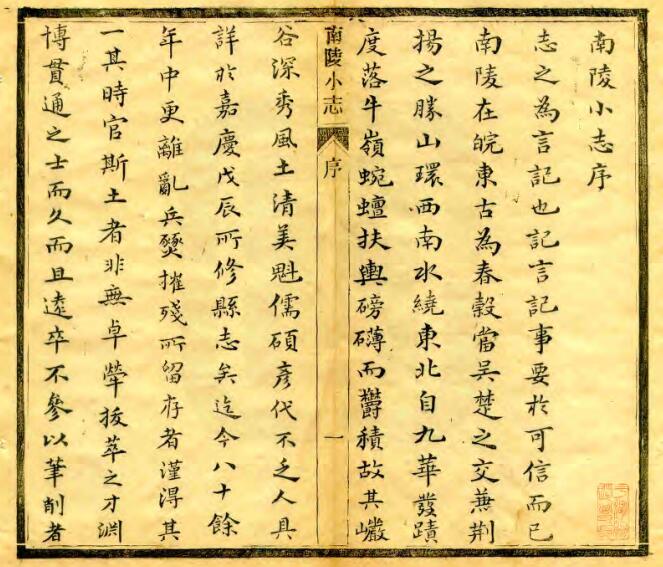 南陵小志序
志之為言記也記言記事要於可信而已
南陵在皖東古為春穀當吳楚之交兼荆
揚之勝山環西南水繞東北自九華發蹟
度落牛嶺蜿蟺扶輿磅礴而欝積故其巘
南陵小志
序
一
谷深秀風土清美魁儒碩彥代不乏人具
詳於嘉慶戊辰所修縣志矣迄今八十餘
年中更離亂兵燹摧殘所留存者谨得其
一其時官斯土者非無卓犖拔萃之才淵
博貫通之士而久而且遠卒不參以筆削者